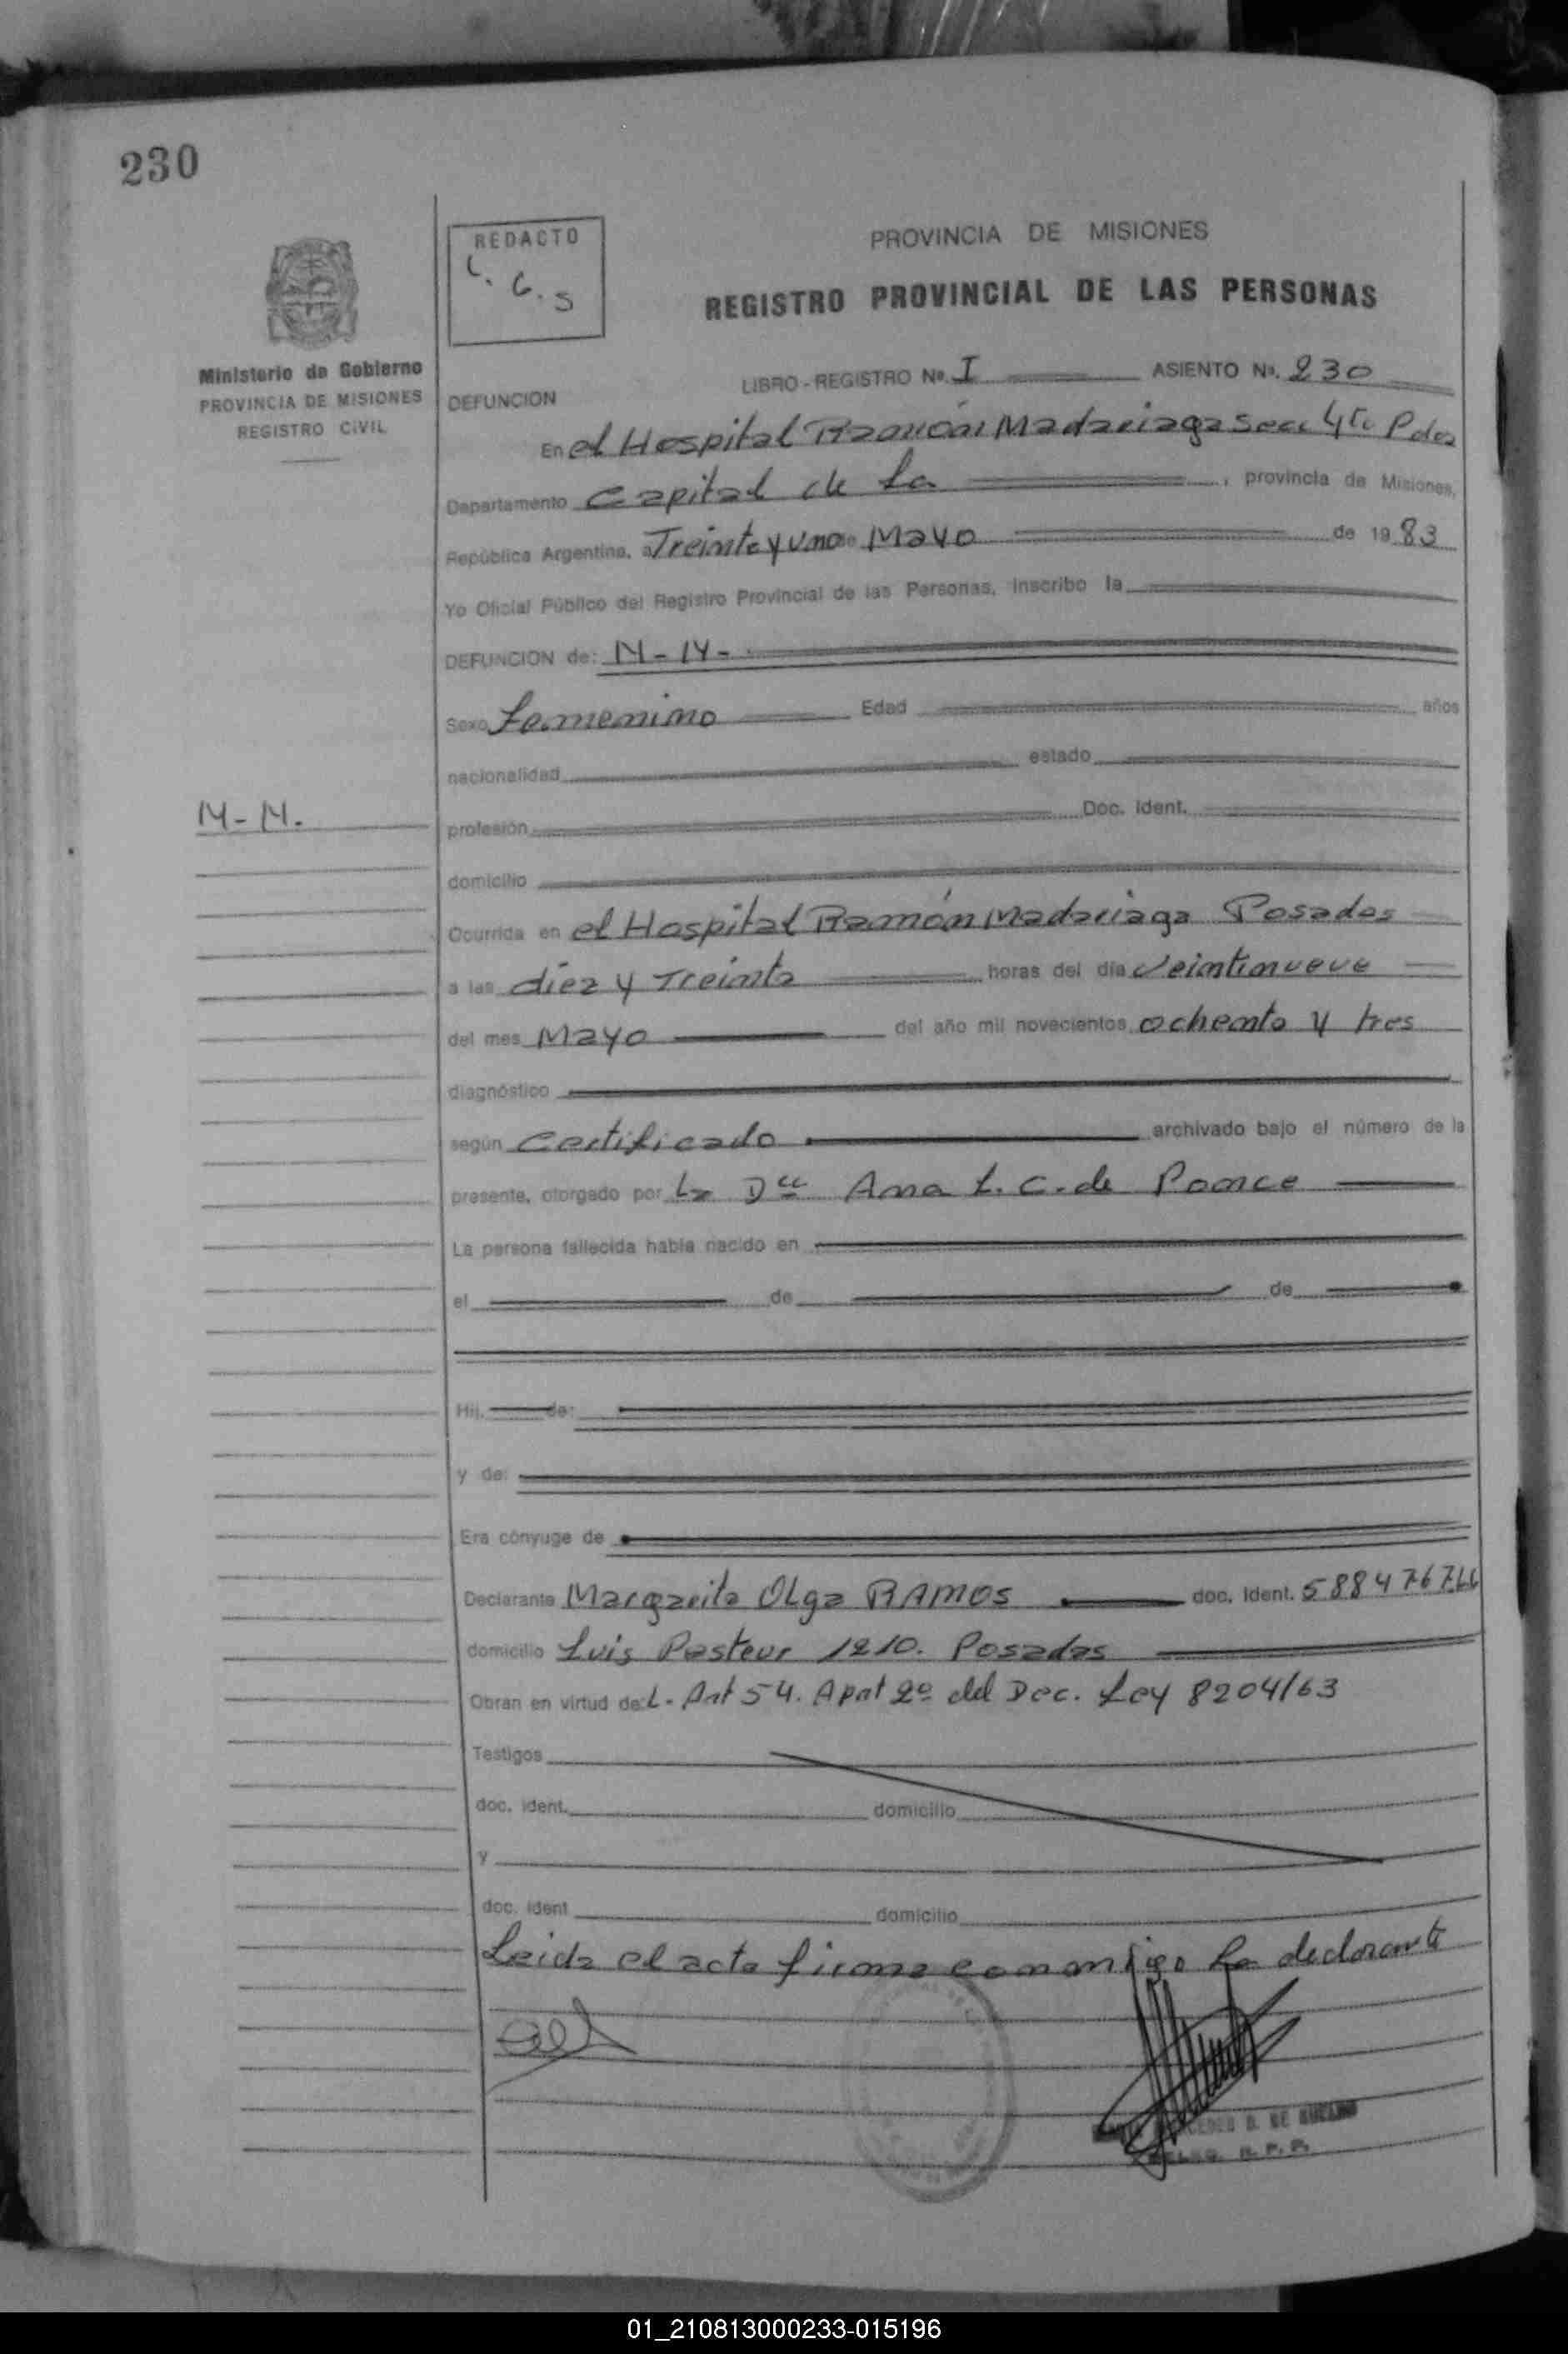 230
REDACTO
C. G. S
PROVINCIA DE MISIONES
REGISTRO PROVINCIAL DE LAS PERSONAS
Ministerio de Gobierno
PROVINCIA DE MISIONES
REGISTRO CIVIL
LIBRO - REGISTRO Nº. I ASIENTO Nº. 230
DEFUNCION
En el Hospital Ramón Madariaga Secc 4ta Pdas
Departamento Capital de la , provincia de Misiones,
República Argentina, a Treinta y uno de Mayo de 1983
Yo Oficial Público del Registro Provincial de las Personas, inscribo la
DEFUNCION de: N-N-
Sexo Femenino Edad años
nacionalidad estado
N-N.
profesión Doc. Ident.
domicilio
Ocurrida en el Hospital Ramón Madariaga Posadas
a las diez y Treinta horas del día Veintinueve
del mes Mayo del año mil novecientos ochenta y tres
diagnóstico
según Certificado archivado bajo el número de la
presente, otorgado por La Dra Ana L. C. de Ponce
La persona fallecida había nacido en
el de de
Hij. de:
y de:
Era cónyuge de
Declarante Margarita Olga RAMOS doc. Ident.
domicilio Luis Pasteur 1210. Posadas
Obran en virtud de: L. Art 54. Apat 2º del Dec. Ley 8204/63
Testigos
doc. ident. domicilio
y
doc. ident domicilio
Leida el acta firma conmigo la declarante
DE
R. P. P.
01_210813000233-015196